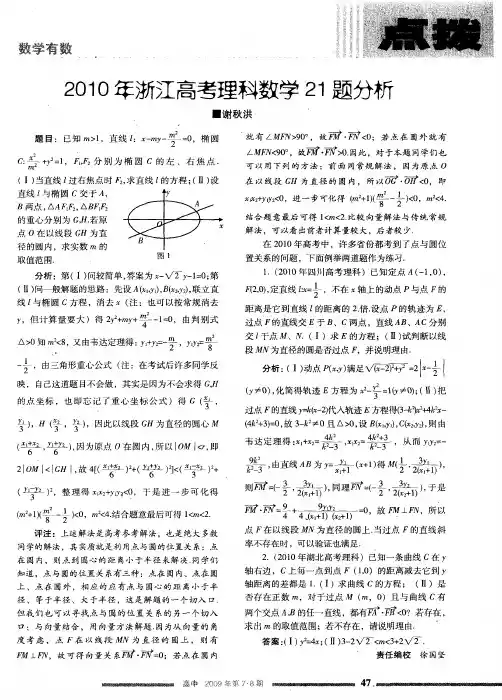 数学有数
点拨
2010年浙江高考理科数学21题分析
■谢秋洪
题目：已知 m>1，直线 l：x-my-m²/2=0，椭圆
C：x²/m²+y²=1，F₁,F₂ 分别为椭圆 C 的左、右焦点.
(Ⅰ)当直线 l 过右焦点时 F₂,求直线 l 的方程；(Ⅱ)设
直线 l 与椭圆 C 交于 A,
B 两点,△AF₁F₂,△BF₁F₂
的重心分别为 G,H.若原
点 O 在以线段 GH 为直
径的圆内，求实数 m 的
取值范围.
y
A
x
B
图1
分析：第(Ⅰ)问较简单,答案为 x-√2 y-1=0;第
(Ⅱ)问一般解题的思路：先设 A(x₁,y₁),B(x₂,y₂),联立直
线 l 与椭圆 C 方程，消去 x（注：也可以按常规消去
y，但计算量要大）得 2y²+my+m²/4-1=0，由判别式
△>0 知 m²<8，又由韦达定理得：y₁+y₂=-m/2，y₁y₂=m²/8
-1/2，由三角形重心公式（注：在考试后许多同学反
映，自己这道题目不会做，其实是因为不会求得 G,H
的点坐标，也即忘记了重心坐标公式）得 G（x₁/3，
y₁/3），H（x₂/3，y₂/3），因此以线段 GH 为直径的圆心 M
（(x₁+x₂)/6，(y₁+y₂)/6）,因为原点 O 在圆内，所以|OM|<r,即
2|OM|<|GH|，故 4[((x₁+x₂)/6)²+((y₁+y₂)/6)²]<((x₁-x₂)/3)²+
((y₁-y₂)/3)²，整理得 x₁x₂+y₁y₂<0，于是进一步可化得
(m²+1)(m²/8-1/2)<0，m²<4.结合题意最后可得 1<m<2.
评注：上述解法是高考参考解法，也是绝大多数
同学的解法，其实质就是利用点与圆的位置关系：点
在圆内，则点到圆心的距离小于半径来解决.同学们
知道，点与圆的位置关系有三种：点在圆内、点在圆
上、点在圆外，相应的应有点与圆心的距离小于半
径、等于半径、大于半径，这是解题的一个切入口.
但我们也可以寻找点与圆的位置关系的另一个切入
口：与向量结合，用向量方法解题.因为从向量的角
度考虑，点 F 在以线段 MN 为直径的圆上，则有
FM⊥FN，故可得向量关系FM·FN=0；若点在圆内
就有∠MFN>90°，故FM·FN<0；若点在圆外就有
∠MFN<90°，故FM·FN>0.因此，对于本题同学们也
可以用下列的方法：前面同常规解法，因为原点 O
在以线段 GH 为直径的圆内，所以OG·OH<0，即
x₁x₂+y₁y₂<0，进一步可化得 (m²+1)(m²/8-1/2)<0，m²<4.
结合题意最后可得 1<m<2.比较向量解法与传统常规
解法，可以看出前者计算量较大，后者较少.
在 2010 年高考中，许多省份都考到了点与圆位
置关系的问题，下面例举两道题作为练习.
1.（2010 年四川高考理科）已知定点 A(-1,0)，
F(2,0),定直线 l:x=1/2，不在 x 轴上的动点 P 与点 F 的
距离是它到直线 l 的距离的 2 倍.设点 P 的轨迹为 E，
过点 F 的直线交 E 于 B、C 两点，直线 AB、AC 分别
交 l 于点 M、N.（Ⅰ）求 E 的方程；(Ⅱ)试判断以线
段 MN 为直径的圆是否过点 F，并说明理由.
分析：(Ⅰ)动点 P(x,y)满足√((x-2)²+y²)=2|x-1/2|
(y≠0),化简得轨迹 E 方程为 x²-y²/3=1(y≠0);(Ⅱ)把
过点 F 的直线 y=k(x-2)代入轨迹 E 方程得(3-k²)x²+4k²x-
(4k²+3)=0,故 3-k²≠0 且△>0,设 B(x₁,y₁),C(x₂,y₂),则由
韦达定理得:x₁+x₂=4k²/(k²-3),x₁x₂=(4k²+3)/(k²-3)，从而 y₁y₂=-
9k²/(k²-3),由直线 AB 为 y=y₁/(x₁+1)(x+1)得 M(1/2,3y₁/2(x₁+1)),
则FM=(-3/2,3y₁/2(x₁+1)),同理FN=(-3/2,3y₂/2(x₂+1)),于是
FM·FN=9/4+9y₁y₂/4(x₁+1)(x₂+1)=0，故 FM⊥FN，所以
点 F 在以线段 MN 为直径的圆上.当过点 F 的直线斜
率不存在时，可以验证也满足.
2.（2010 年湖北高考理科）已知一条曲线 C 在 y
轴右边，C 上每一点到点 F (1,0) 的距离减去它到 y
轴距离的差都是 1.（Ⅰ）求曲线 C 的方程；（Ⅱ）是
否存在正数 m，对于过点 M（m，0）且与曲线 C 有
两个交点 A,B 的任一直线，都有FA·FB<0？若存在，
求出 m 的取值范围；若不存在，请说明理由.
答案:(Ⅰ)y²=4x;(Ⅱ)3-2√2<m<3+2√2.
责任编校 徐国坚
高中 2009 年第 7·8 期 47